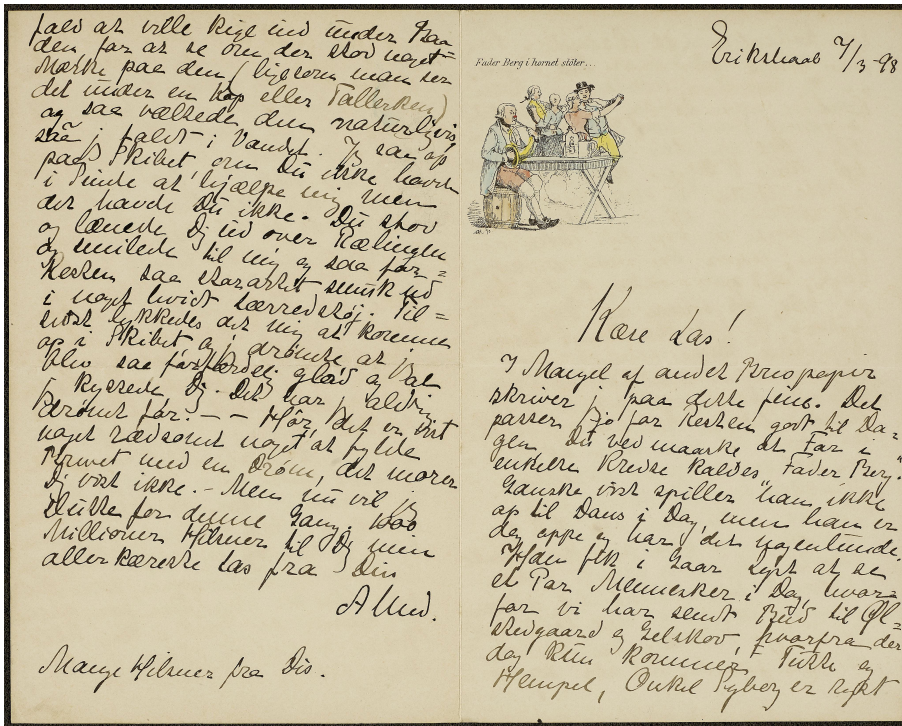 fald at ville kige ind under Baa-
den for at se om der stod noget
Mærke paa den (ligesom man ser
det under en Kop eller Tallerken)
og saa væltede den naturligvis
saa j faldt i Vandet. Jeg saa op
paa Skibet, om Du ikke havde
i Sinde at hjælpe mig men
det havde Du ikke. Du stod
og lænede Dig ud over Rælingen
og smilede til mig og saa for=
resten saa smuk ud
i noget hvidt Lærredstøj. Til=
sidst lykkedes det mig at komme
op i Skibet og j drømte at j
blev saa forfærdelig glad og at
j kyssede Dig. Det har j aldrig
drømt før! – – Hør, det er vist
noget rædsomt noget at fylde
Brevet med en Drøm, det morer
Dig vist ikke. – Men nu vil jeg
slutte for denne Gang. 1000
Millioner Hilsner til Dig min
allerkæreste Las fra Din
Alhed.
Mange Hilsner fra Dis.
Erikshaab 7/3-98
Fader Berg i hornet stöter...
Kære Las!
I Mangel af andet Brevpapir
skriver j paa dette fine. Det
passer jo for Resten godt til Da=
gen, Du ved maaske at Far i
enkelte Kredse kaldes "Fader Berg."
Ganske vist spiller han ikke
op til Dans i Dag, men han er
dog oppe og har det nogenlunde.
Han fik i Gaar Lyst at se
et Par Mennesker i Dag, hvor=
for vi har sendt Bud til Øl=
stedgaard og Gelskov, hvorfra der
dog kun kommer Tutte og
Hempel, Onkel Syberg er rejst